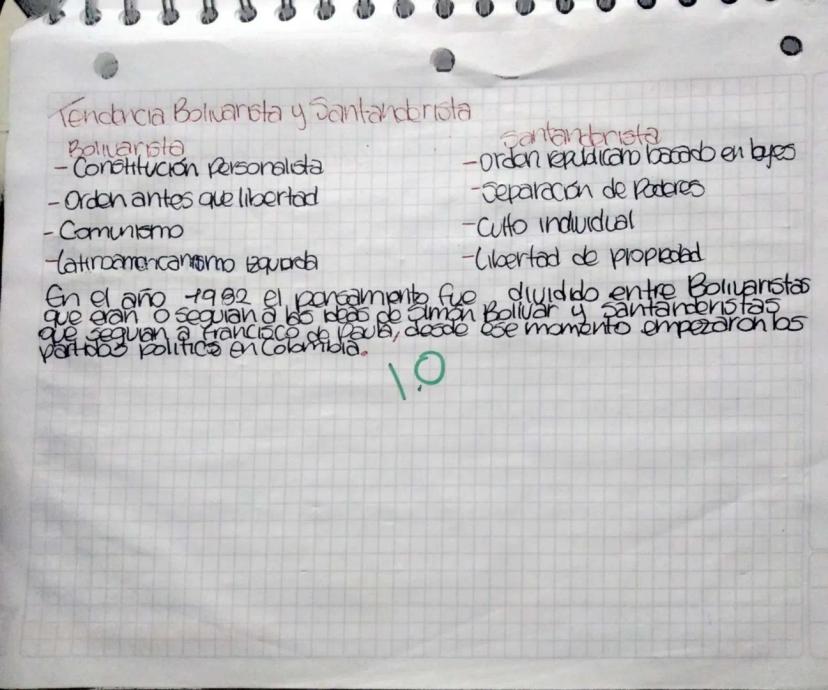 Tendencia Bolivarista y Santanderista
Bolivarista
- Constitución personalista
- Orden antes que libertad
- Comunismo
- Latinoamericanismo izquierda
Santanderista
- orden republicano basado en leyes
- Separación de Poderes
- Culto individual
- Libertad de propiedad
En el año 1982 el pensamiento fue dividido entre Bolivaristas
que eran o seguian a las ideas de Simón Bolívar y santanderistas
que seguian a Francisco de Paula, desde ese momento empezaron los
partidos politico en Colombia.
1.0